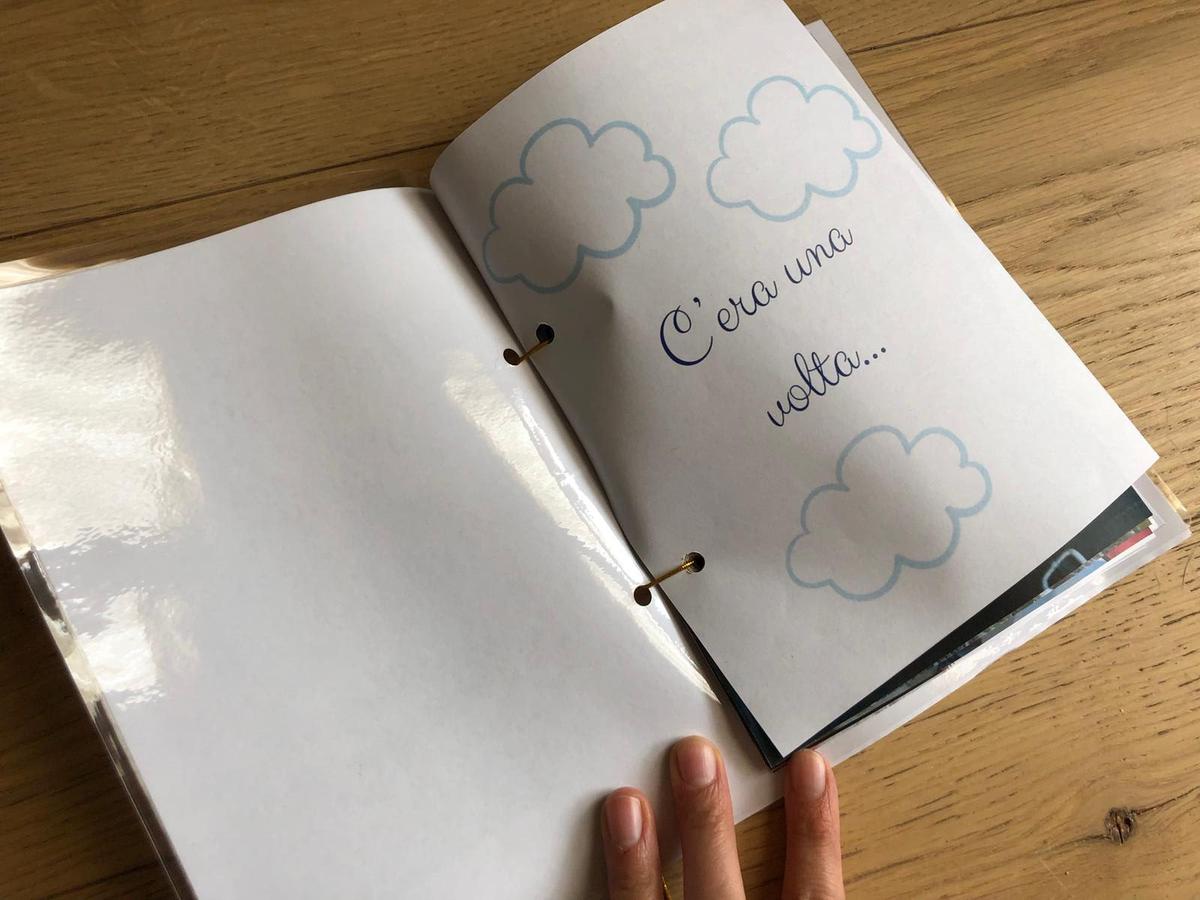 C'era una
volta...